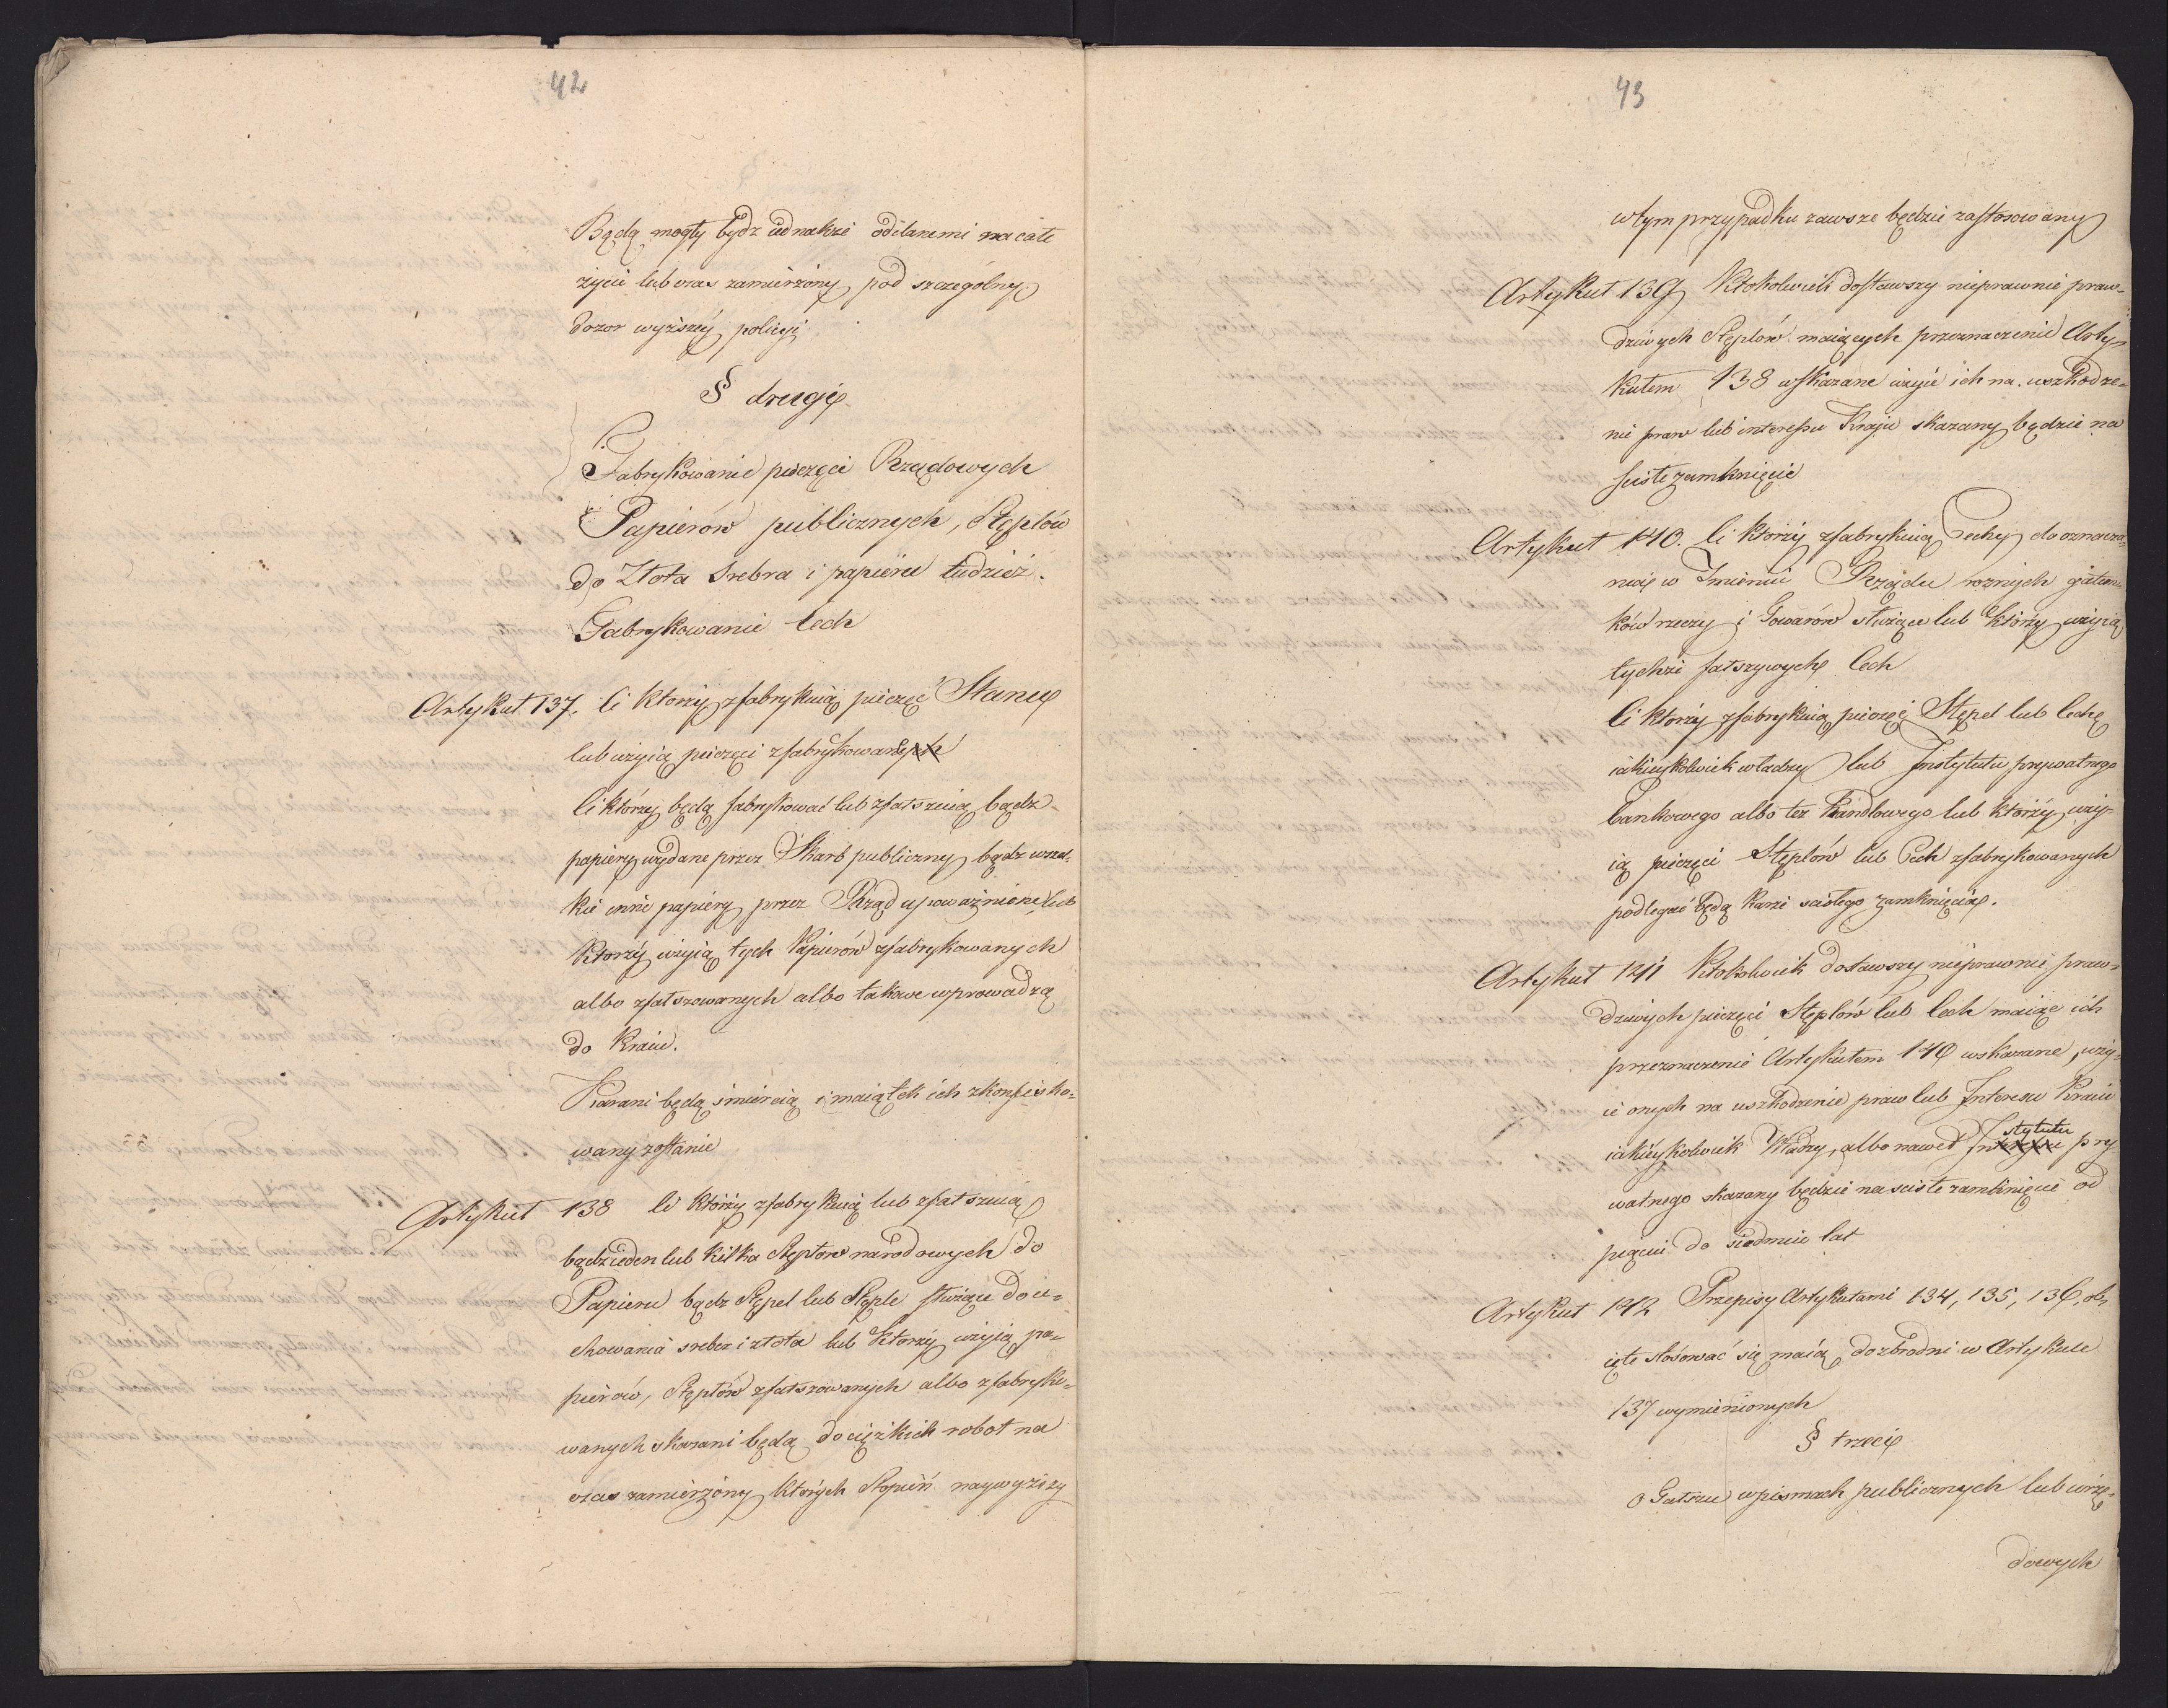 42
Będą mogły bydź iednakże oddanemi na całe
życie lub czas zamierzony pod szczególny
dozor wyższéy policyi
§ drugi
Fabrykowanie pieczęci Rządowych
Papierów publicznych, Stęplów
do Złota Srebra i papieru tudzież
Fabrykowanie Cech
Artykuł 137. Ci ktorzy zfabrykuią pieczęć Stanu
lub użyią pieczęci zfabrykowanéy
Ci którzy będą fabrykować lub zfałszuią bądz
papiery wydane przez Skarb publiczny bądz wszel-
kie inne papiery przez Rząd upoważnione lub
ktorzy użyią tych Papierów zfabrykowanych
albo zfałszowanych albo takowe wprowadzą
do Kraiu.
Karani będą śmiercią i maiątek ich zkonfisko-
wany zostanie
Artykuł 138 Ci którzy zfabrykuią lub zfałszuią
bądz ieden lub kilka Stęplow narodowych do
Papieru bądz Stępel lub Stęple służące do ce-
chowania srebra i złota lub ktorzy użyią pa-
pierów, Stęplów zfałszowanych albo zfabryko-
wanych skazani będą do ciężkich robot na
czas zamierzony których Stopień naywyższy
43
w tym przypadku zawsze będzie zastosowany
Artykuł 139 Ktokolwiek dostawszy nieprawnie praw-
dziwych Stęplów maiących przeznaczenie Arty-
kułem 138 wskazane użyie ich na uszkodze-
nie praw lub interessu Kraju skazany będzie na
scisłe zamknięcie
Artykuł 140. Ci ktorzy zfabrykuią Cechy do oznacza-
nia w Imieniu Rządu roznych gatun-
ków rzeczy i Towarów służące lub ktorzy użyią
tychże fałszywych Cech
Ci ktorzy zfabrykuią pieczęć Stępel lub Cechę
iakieykolwiek władzy lub Instytutu prywatnego
Bankowego albo tez Handlowego lub ktorzy uży-
ią pieczęci Stęplów lub Cech zfabrykowanych
podlegać będą karze scisłego zamknięcia.
Artykuł 141 Ktokolwiek dostawszy nieprawnie praw-
dziwych pieczęci Stęplów lub Cech maiące ich
przeznaczenie Artykułem 140 wskazane, uży-
ie onych na uszkodzenie praw lub Interesu Kraiu
iakieykolwiek Władzy, albo nawet Instytutu pry-
watnego skazany będzie na scisłe zamknięcie od
pięciu do siedmiu lat
Artykuł 142 Przepisy Artykułami 134, 135, 136, ob-
ięte stosować się maią do zbrodni w Artykule
137 wymienionych
§ trzeci
o Fałszu w pismach publicznych lub urzę-
dowych